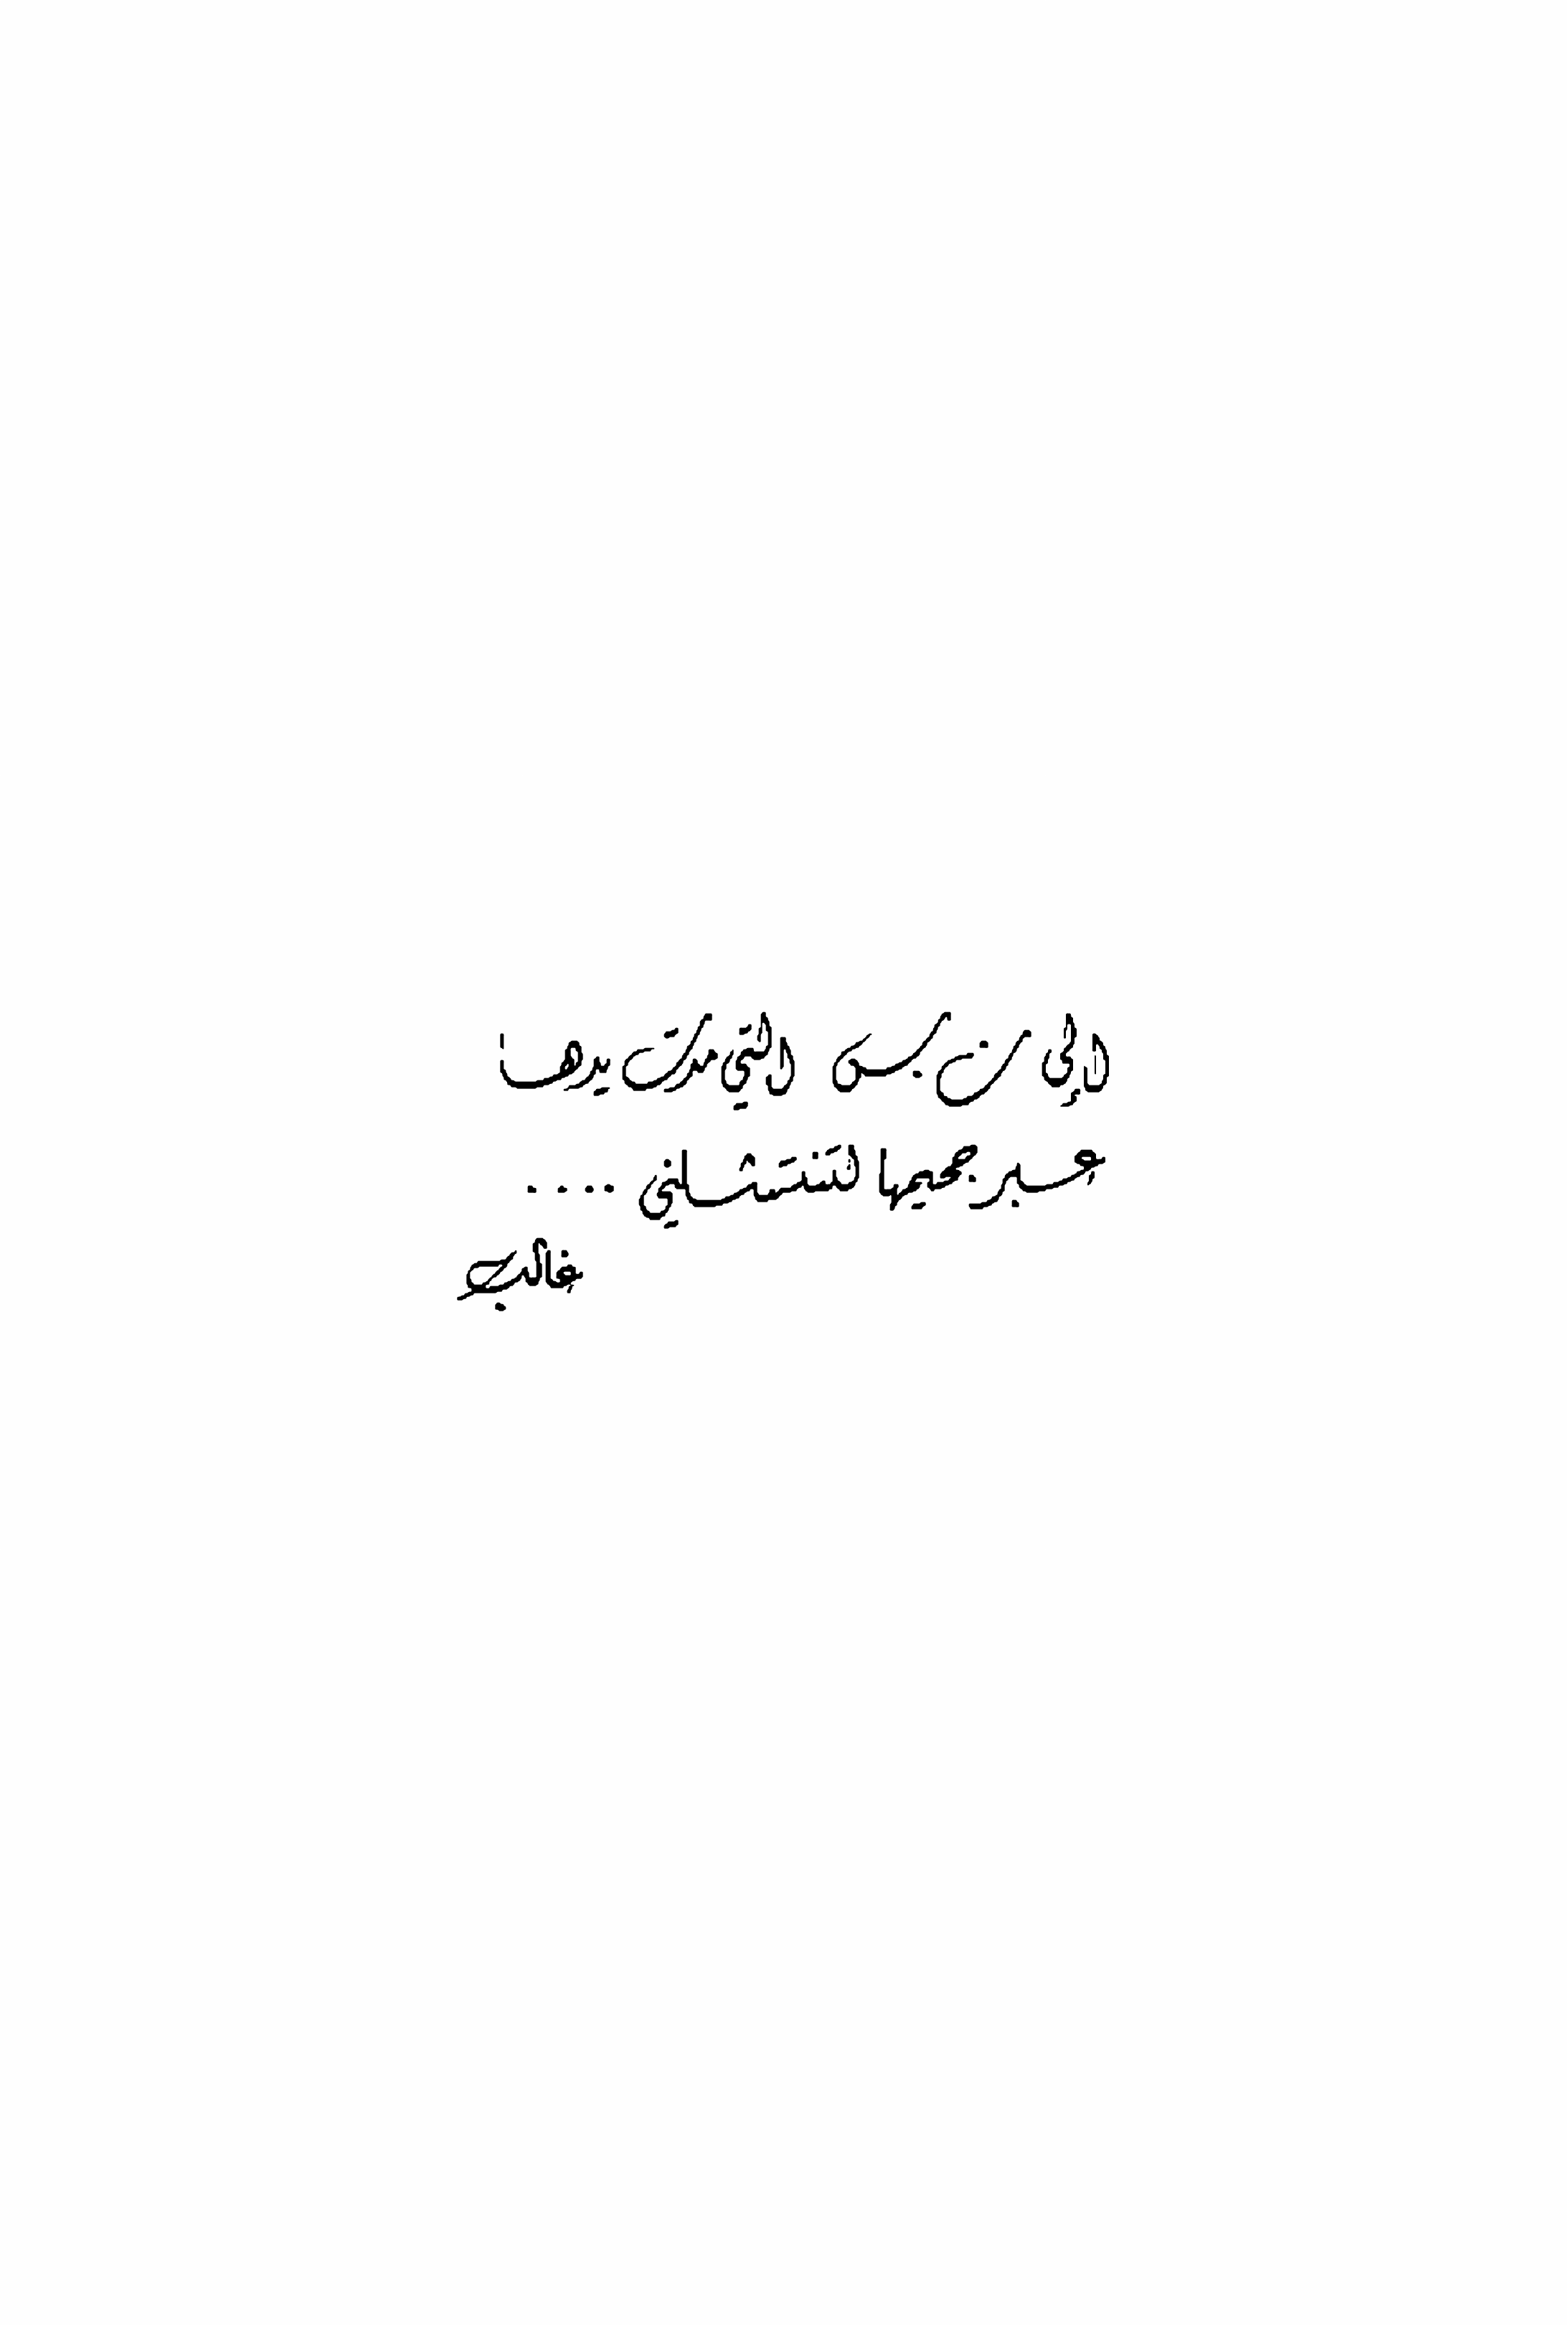 إلى نرسـ التي مدت يدها
عبر جحيمها لتنتشلني ....
غالب